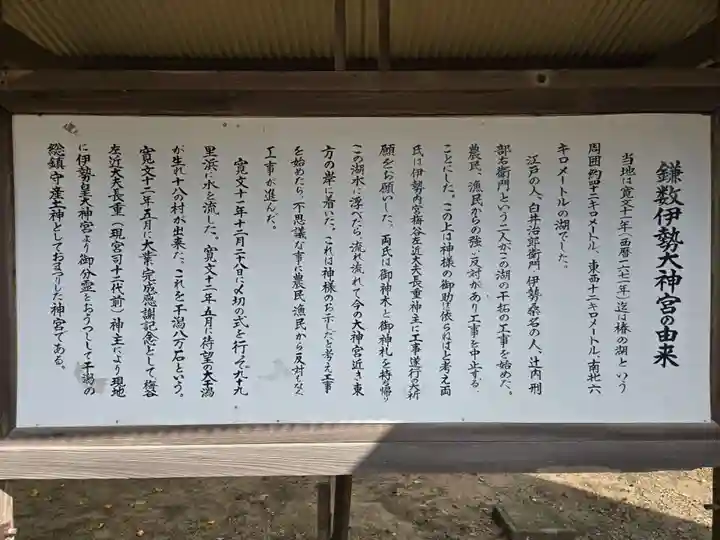 鎌数伊勢大神宮の由来
当地は寛文十一年(西暦一六七一年)迄は椿の湖という
周囲約四十二キロメートル、東西十二キロメートル、南北六
キロメートルの湖でした。
江戸の人、白井治郎衛門 伊勢桑名の人、辻内 刑
部右衛門という二人がこの湖の干拓の工事を始めた。
農民、漁民からの強い反対があり工事を中止する
ことにした。この上は神様の御助け依らねばと考え両
氏は伊勢内宮梅谷左近太夫長重神主に工事遂行の大祈
願をお願いした。両氏は御神木と御神札を持ち帰り
この湖水に浮べたら、流れ流れて今の大神宮近き東
方の岸に着いた。これは神様のお示しだと考え工事
を始めたら、不思議な事に農民、漁民から反対もなく
工事が進んだ。
寛文十年十二月二十八日に〆切の式を行ない九十九
里浜に水を流した。寛文十二年五月に待望の大干潟
が生れ十八の村が出来た。これを干潟八万石という。
寛文十二年五月に大業完成感謝記念として梅谷
左近太夫長重(現宮司十二代前)神主により現地
に伊勢皇大神宮より御分霊をおうつしして干潟の
総鎮守産土神としておまつりした神宮である。